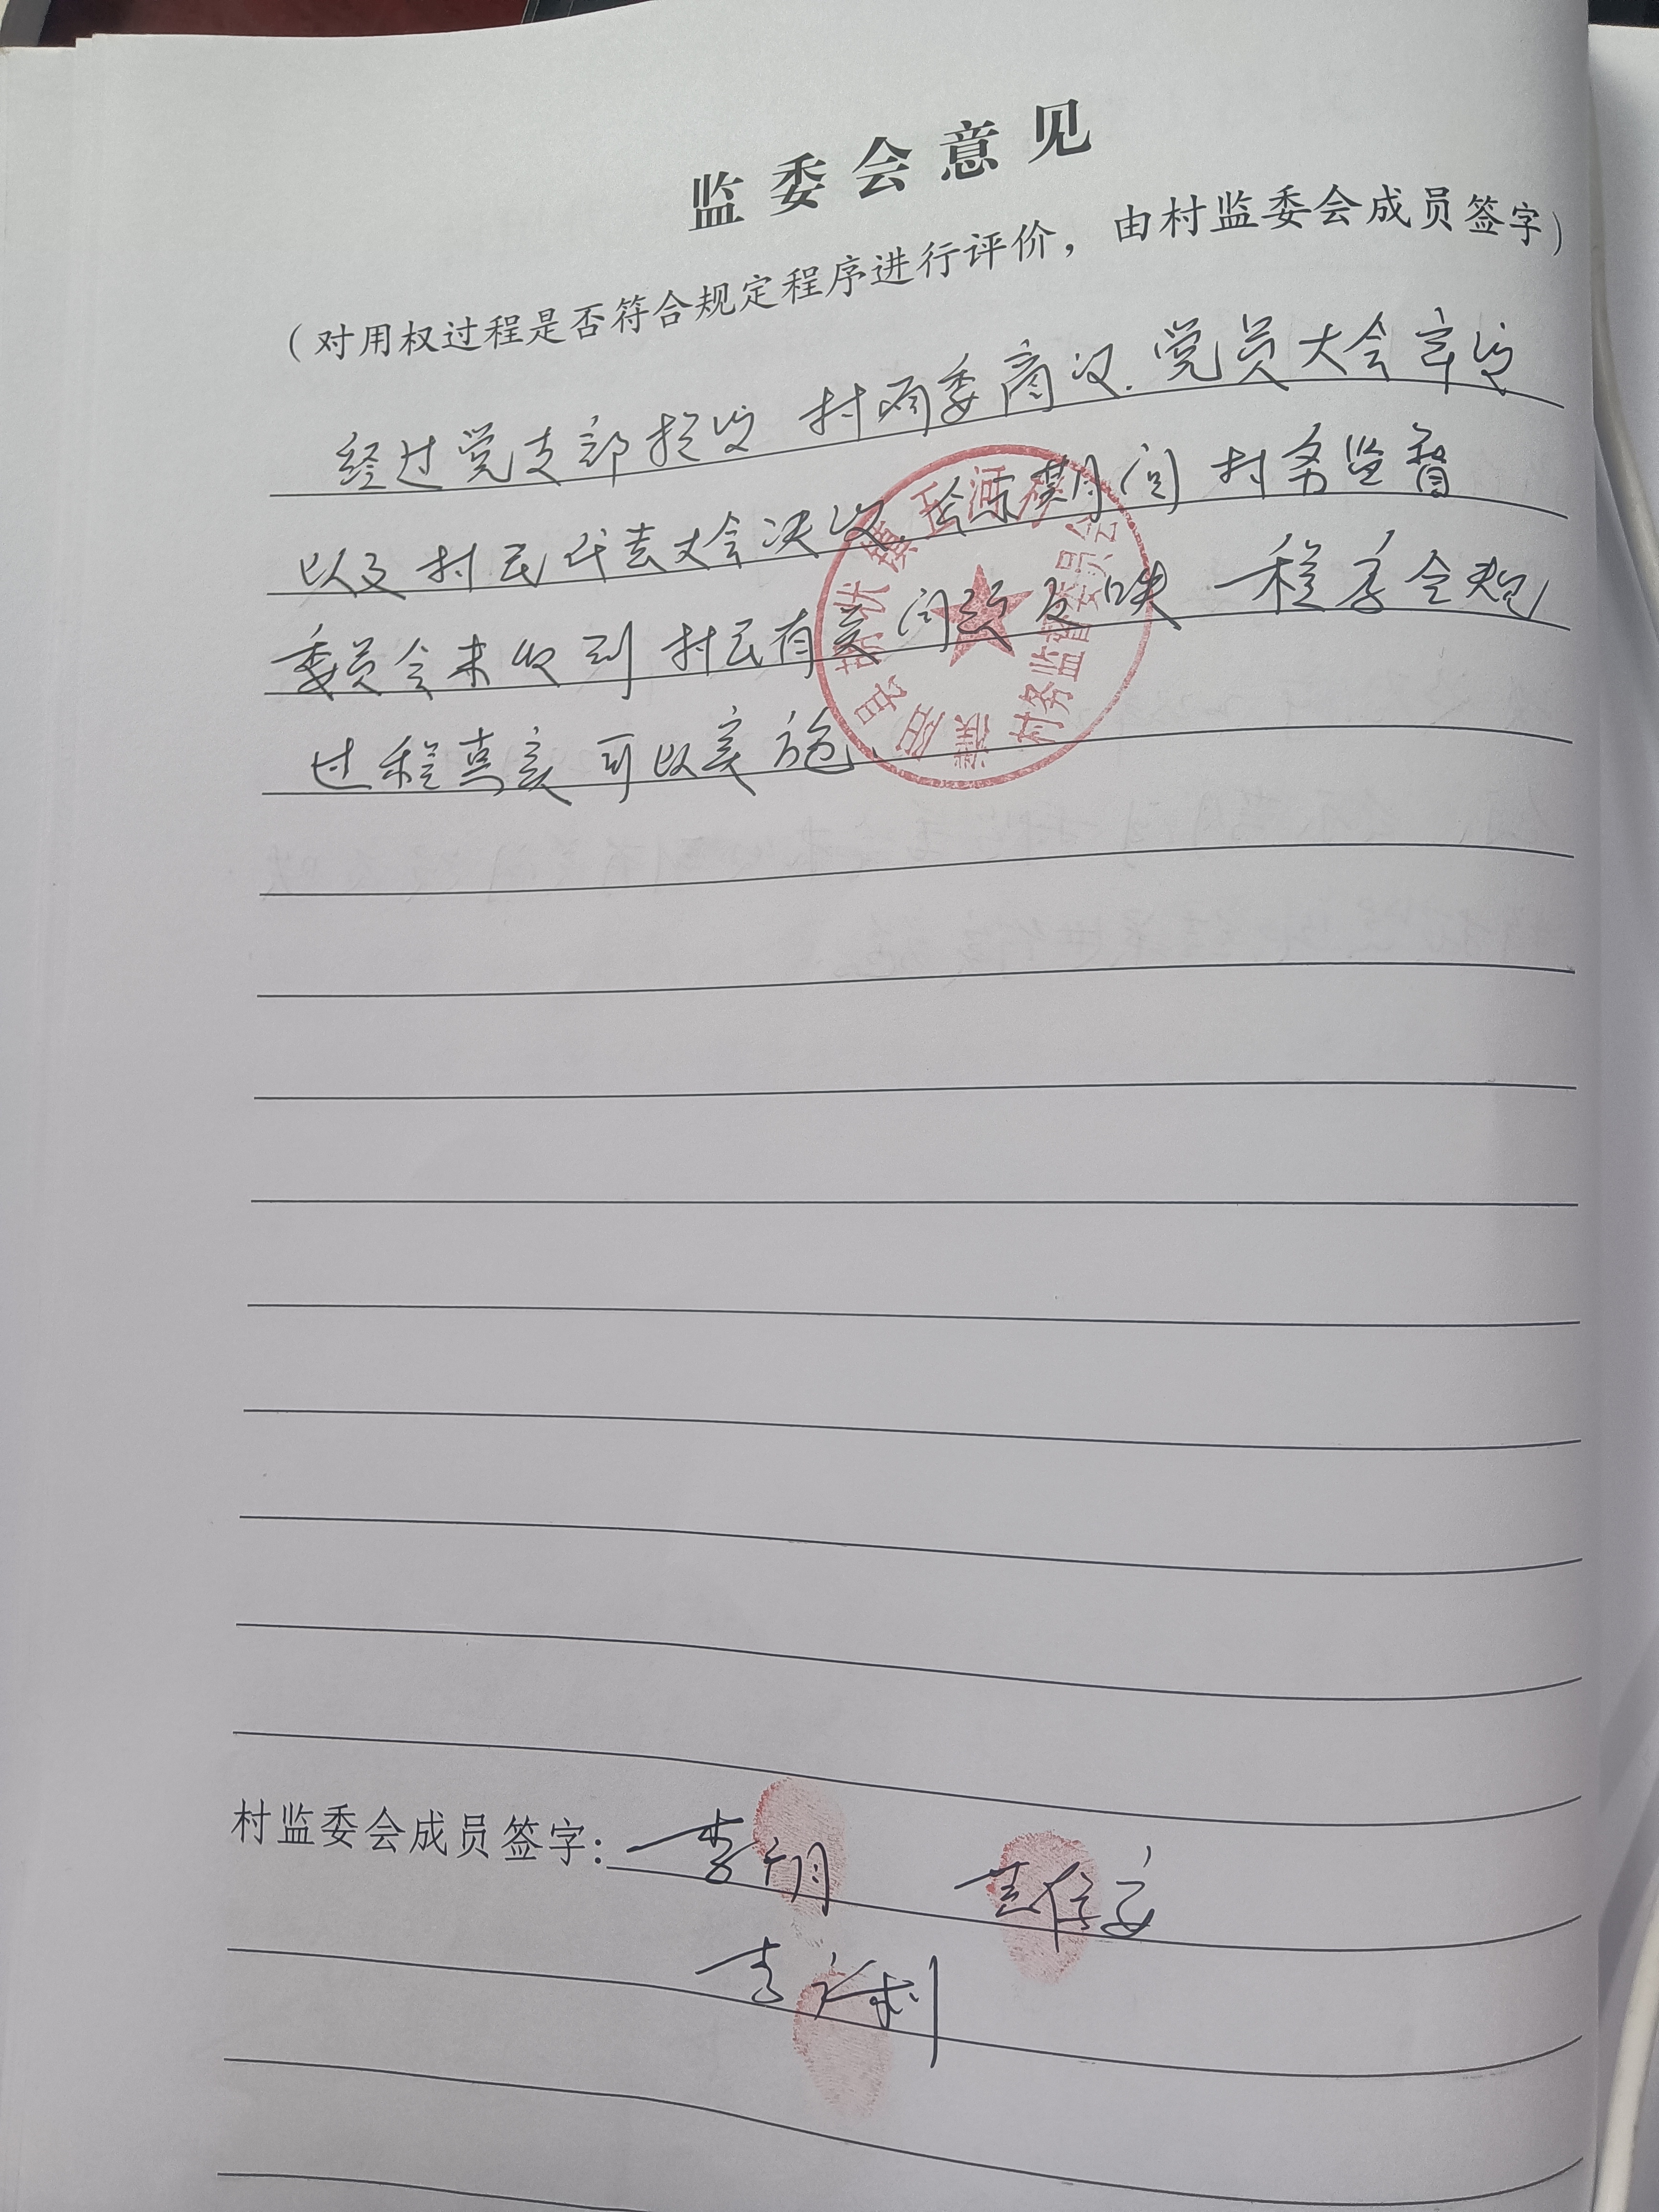 监委会意见
（对用权过程是否符合规定程序进行评价，由村监委会成员签字）
经过党支部提议 村两委商议.党员大会审议
以及村民代表大会决议.公示期间村务监督
委员会未收到村民有关问题反映 程序合规
过程真实可以实施.
县 镇 河 村务监督委员会
村监委会成员签字：李
李 利